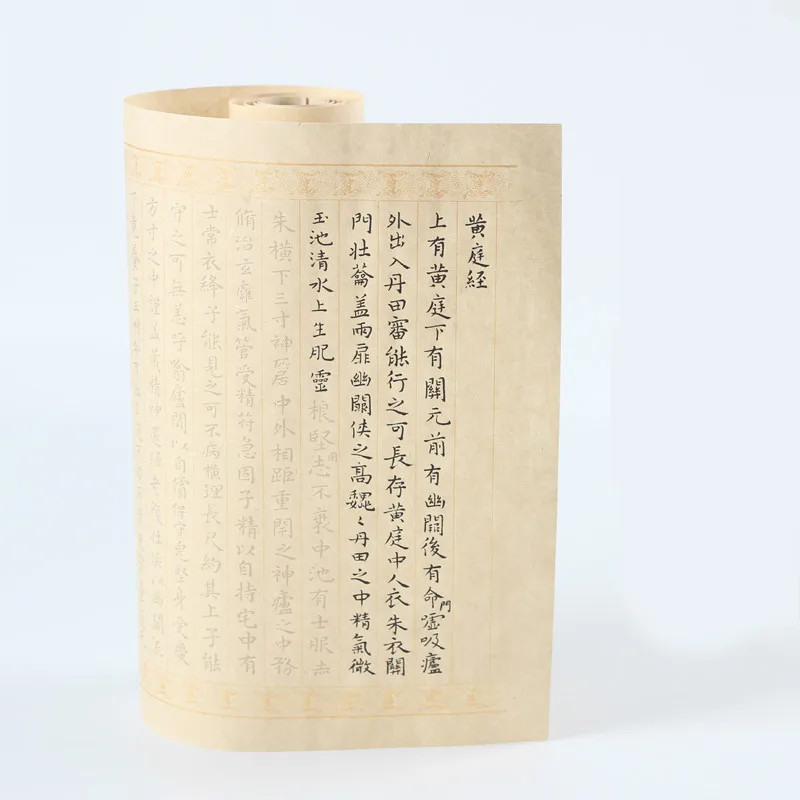 黄庭経
上有黄庭下有關元前有幽闕後有命門噓吸廬
外出入丹田審能行之可長存黄庭中人衣朱衣關
門壯蘥盖兩扉幽闕俠之高魏〻丹田之中精氣微
玉池清水上生肥靈根堅志不衰中池有士服赤
朱横下三寸神所居中外相距重閉之神廬之中務
脩治玄癰氣管受精符急固子精以自持宅中有
士常衣絳子能見之可不病橫理長尺約其上子能
守之可無恙呼噏廬間以自償保守完堅身受慶
方寸之中謹盖藏精神還歸